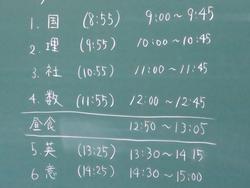 1. 国 (8:55) 9:00～9:45
2. 理 (9:55) 10:00～10:45
3. 社 (10:55) 11:00～11:45
4. 数 (11:55) 12:00～12:45
昼食 12:50～13:05
5. 英 (13:25) 13:30～14:15
6. 意 (14:25) 14:30～15:00